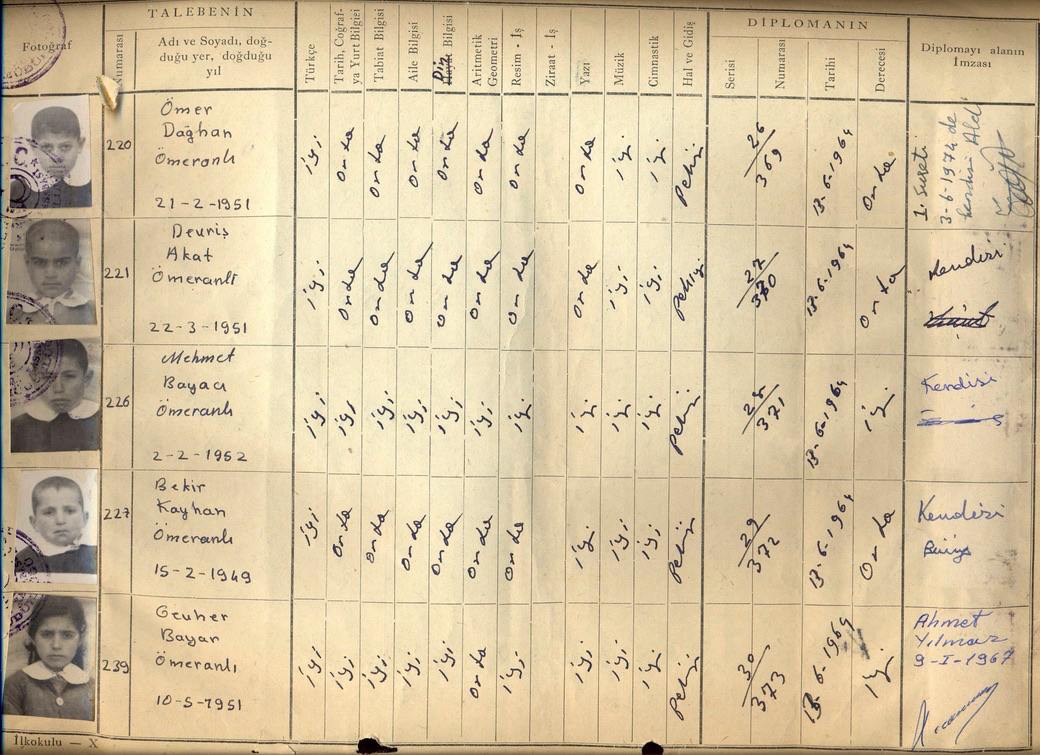 TALEBENİN
DİPLOMANIN
Fotoğraf
Numarası
Adı ve Soyadı, doğ-
duğu yer, doğduğu
yıl
Türkçe
Tarih, Coğraf-
ya Yurt Bilgisi
Tabiat Bilgisi
Aile Bilgisi
Din
Hayat Bilgisi
Aritmetik
Geometri
Resim - İş
Ziraat - İş
Yazı
Müzik
Cimnastik
Hal ve Gidiş
Serisi
Numarası
Tarihi
Derecesi
Diplomayı alanın
İmzası
220
Ömer
Dağhan
Ömeranlı
21-2-1951
iyi orta orta orta orta orta orta orta iyi iyi Pekiyi 26/369 13-6-1964 Orta
1. Sureti
3-6-1974 de
kendisi Aldı
221
Devriş
Akat
Ömeranlı
22-3-1951
iyi orta orta orta orta orta orta orta iyi iyi Pekiyi 27/370 13-6-1964 Orta
Kendisi
226
Mehmet
Bayacı
Ömeranlı
2-2-1952
iyi iyi iyi iyi iyi iyi iyi iyi iyi iyi Pekiyi 28/371 13-6-1964 iyi
Kendisi
227
Bekir
Kayhan
Ömeranlı
15-2-1949
iyi orta orta orta orta orta orta iyi iyi iyi Pekiyi 29/372 13-6-1964 Orta
Kendisi
239
Gevher
Bayar
Ömeranlı
10-5-1951
iyi iyi iyi iyi iyi orta iyi iyi iyi iyi Pekiyi 30/373 13-6-1964 iyi
Ahmet
Yılmaz
9-I-1967
İlkokulu — X